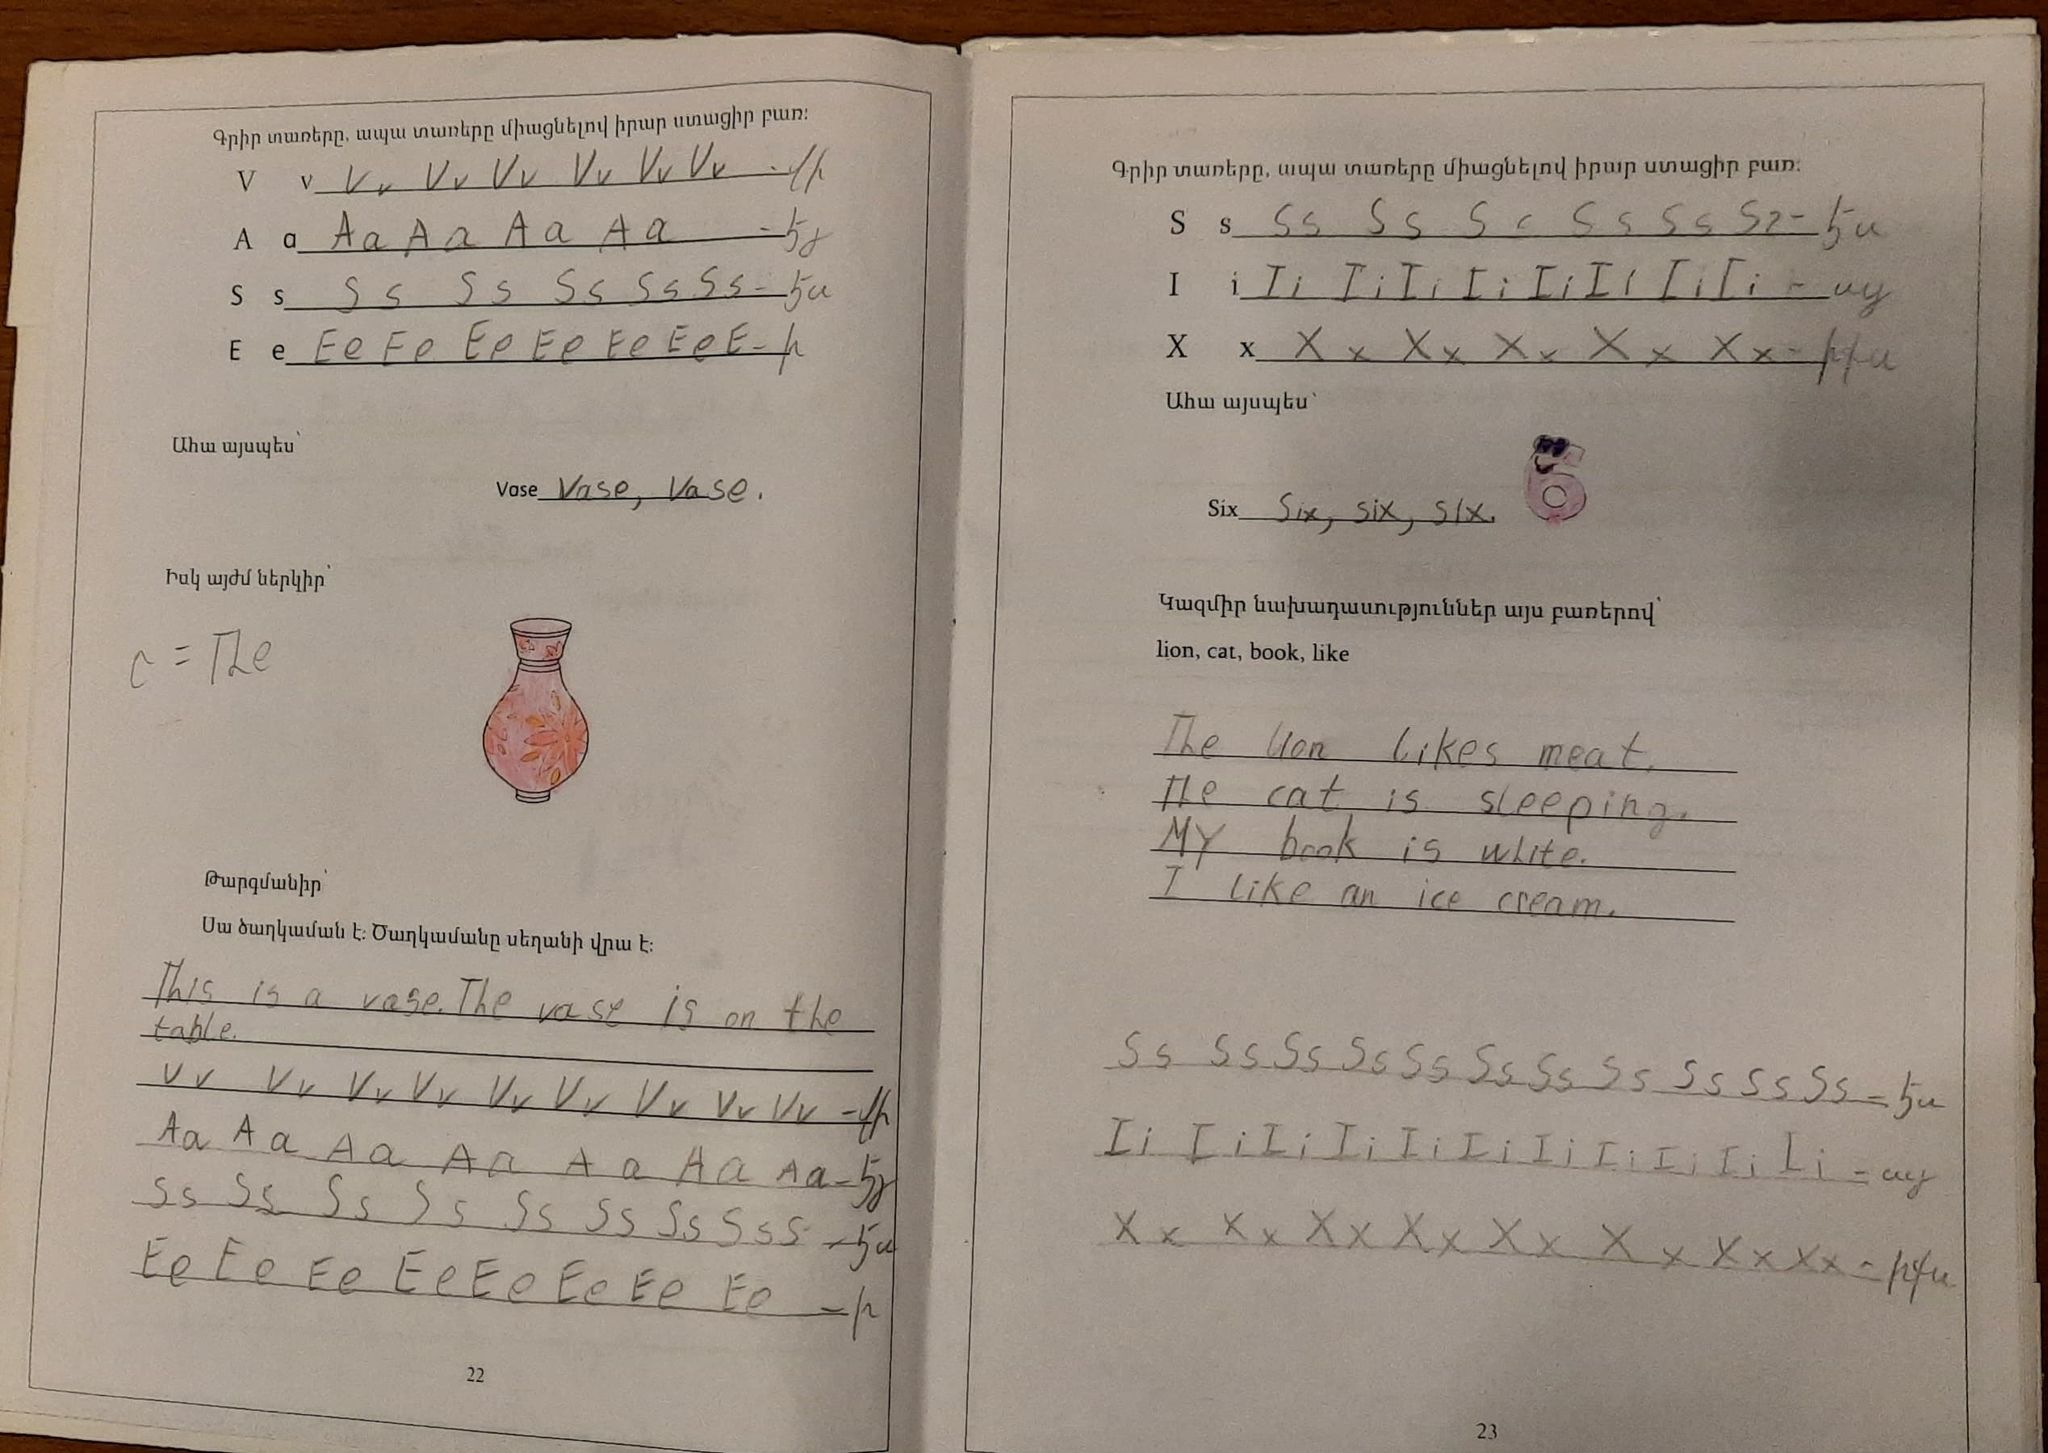 Գրիր տառերը, ապա տառերը միացնելով իրար ստացիր բառ:
V v Vv Vv Vv Vv Vv Vv - վի
A a Aa Aa Aa Aa - էյ
S s Ss Ss Ss Ss Ss - էս
E e Ee Ee Ee Ee Ee Ee E - ի
Ահա այսպես՝
Vase Vase, Vase.
Իսկ այժմ ներկիր՝
= The
Թարգմանիր՝
Սա ծաղկաման է: Ծաղկամանը սեղանի վրա է:
This is a vase. The vase is on the
table.
Vv Vv Vv Vv Vv Vv Vv Vv Vv - վի
Aa Aa Aa Aa Aa Aa Aa - էյ
Ss Ss Ss Ss Ss Ss Ss Ss S - էս
Ee Ee Ee Ee Ee Ee Ee Ee - ի
22
Գրիր տառերը, ապա տառերը միացնելով իրար ստացիր բառ:
S s Ss Ss Ss Ss Ss Ss - էս
I i Ii Ii Ii Ii Ii Ii Ii Ii - այ
X x Xx Xx Xx Xx Xx - իքս
Ահա այսպես՝
6
Six Six, six, six.
Կազմիր նախադասություններ այս բառերով՝
lion, cat, book, like
The lion likes meat.
The cat is sleeping.
My book is white.
I like an ice cream.
Ss Ss Ss Ss Ss Ss Ss Ss Ss Ss Ss - էս
Ii Ii Ii Ii Ii Ii Ii Ii Ii Ii Ii - այ
Xx Xx Xx Xx Xx Xx Xx Xx - իքս
23